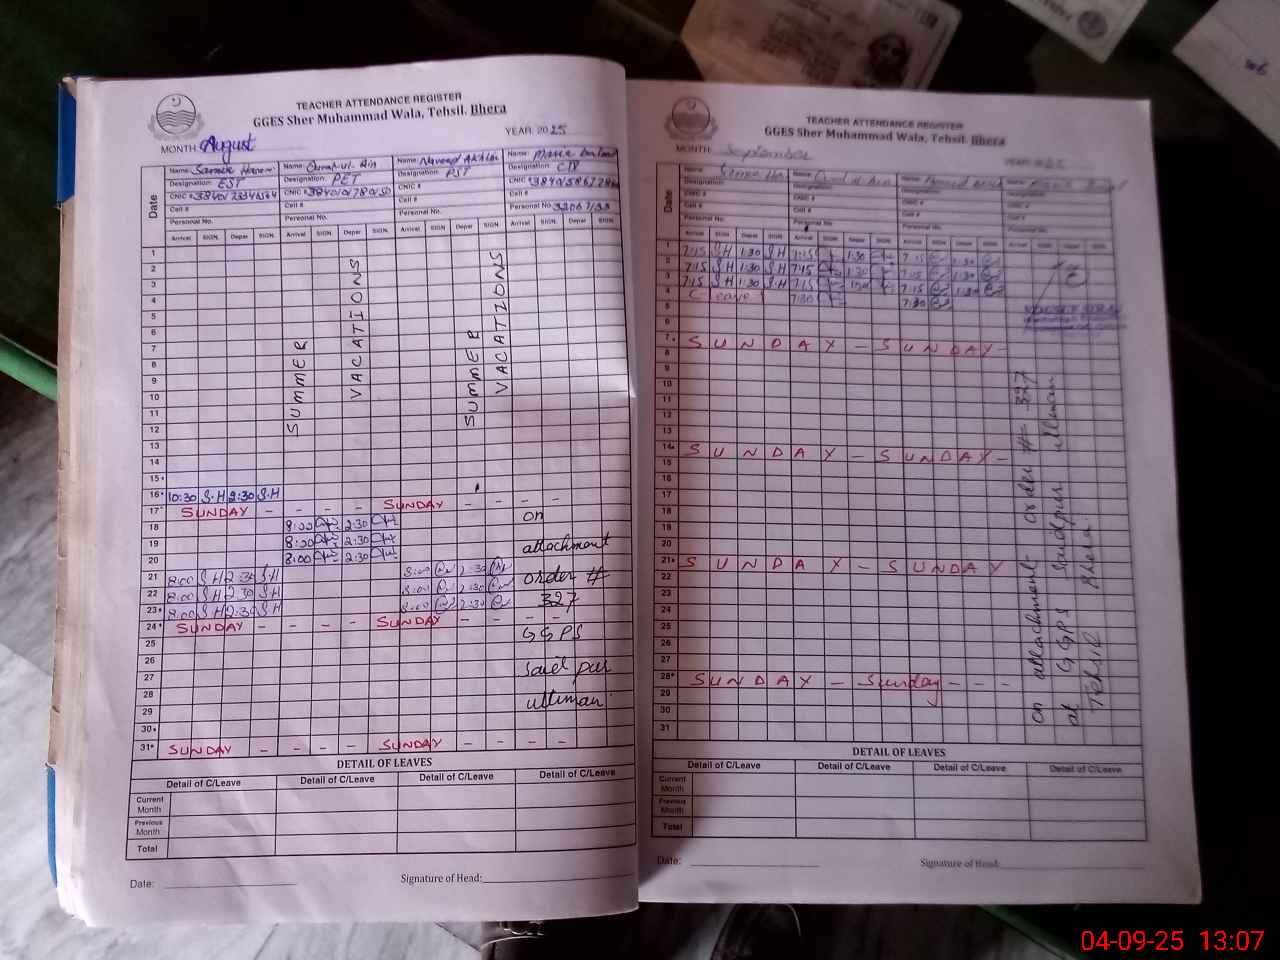 TEACHER ATTENDANCE REGISTER
GGES Sher Muhammad Wala, Tehsil. Bhera
MONTH August YEAR: 2025
Name: Name: Qurrat-ul-Ain Name: Naveed Akhtar Name: Maria
Designation: EST Designation: PET Designation: PST Designation:
CNIC # CNIC # CNIC # CNIC #
Cell # Cell # Cell #
Personal No. Personal No. Personal No. Personal No.
Date Arrival SIGN. Depar SIGN. Arrival SIGN. Depar SIGN. Arrival SIGN. Depar SIGN. Arrival SIGN. Depar SIGN.
1
2
3
4
5
6
7
8
9
10
11
12
13
14
15
SUMMER VACATIONS
SUMMER VACATIONS
16 10:30 S.H 2:30 S.H
17 SUNDAY - - - - SUNDAY - - - -
18 8:00 2:30 on
19 8:00 2:30 attachment
20 8:00 2:30
21 8:00 S.H 2:30 S.H 8:00 2:30 order #
22 8:00 S.H 2:30 S.H 8:00 2:30
23 8:00 S.H 2:30 S.H 8:00 2:30 327
24 SUNDAY - - - - SUNDAY - - - -
25 GGPS
26
27 Said pur
28
29 ulliman
30
31 SUNDAY - - - - SUNDAY - - - -
DETAIL OF LEAVES
Detail of C/Leave Detail of C/Leave Detail of C/Leave Detail of C/Leave
Current Month
Previous Month
Total
Date: Signature of Head:
TEACHER ATTENDANCE REGISTER
GGES Sher Muhammad Wala, Tehsil. Bhera
MONTH: September YEAR: 2025
Name: Name: Name: Name:
Designation:
CNIC # CNIC # CNIC # CNIC #
Cell # Cell # Cell # Cell #
Personal No. Personal No. Personal No. Personal No.
Date Arrival SIGN. Depar SIGN. Arrival SIGN. Depar SIGN. Arrival SIGN. Depar SIGN. Arrival SIGN. Depar SIGN.
1 7:15 S.H 1:30 S.H 7:15 1:30 7:15 1:30
2 7:15 S.H 1:30 S.H 7:15 1:30 7:15 1:30
3 7:15 S.H 1:30 S.H 7:15 1:30 7:15 1:30
4 C-leave 7:30 7:30
5
6
7 SUNDAY - SUNDAY -
8
9
10
11
12
13
14 SUNDAY - SUNDAY -
15
16
17
18
19
20
21 SUNDAY - SUNDAY
22
23
24
25
26
27
28 SUNDAY - Sunday - - -
29
30
31
on attachment order # 327
at GGPS Saidpur ulliman
Tehsil Bhera
DETAIL OF LEAVES
Detail of C/Leave Detail of C/Leave Detail of C/Leave Detail of C/Leave
Current Month
Previous Month
Total
Date: Signature of Head:
04-09-25 13:07